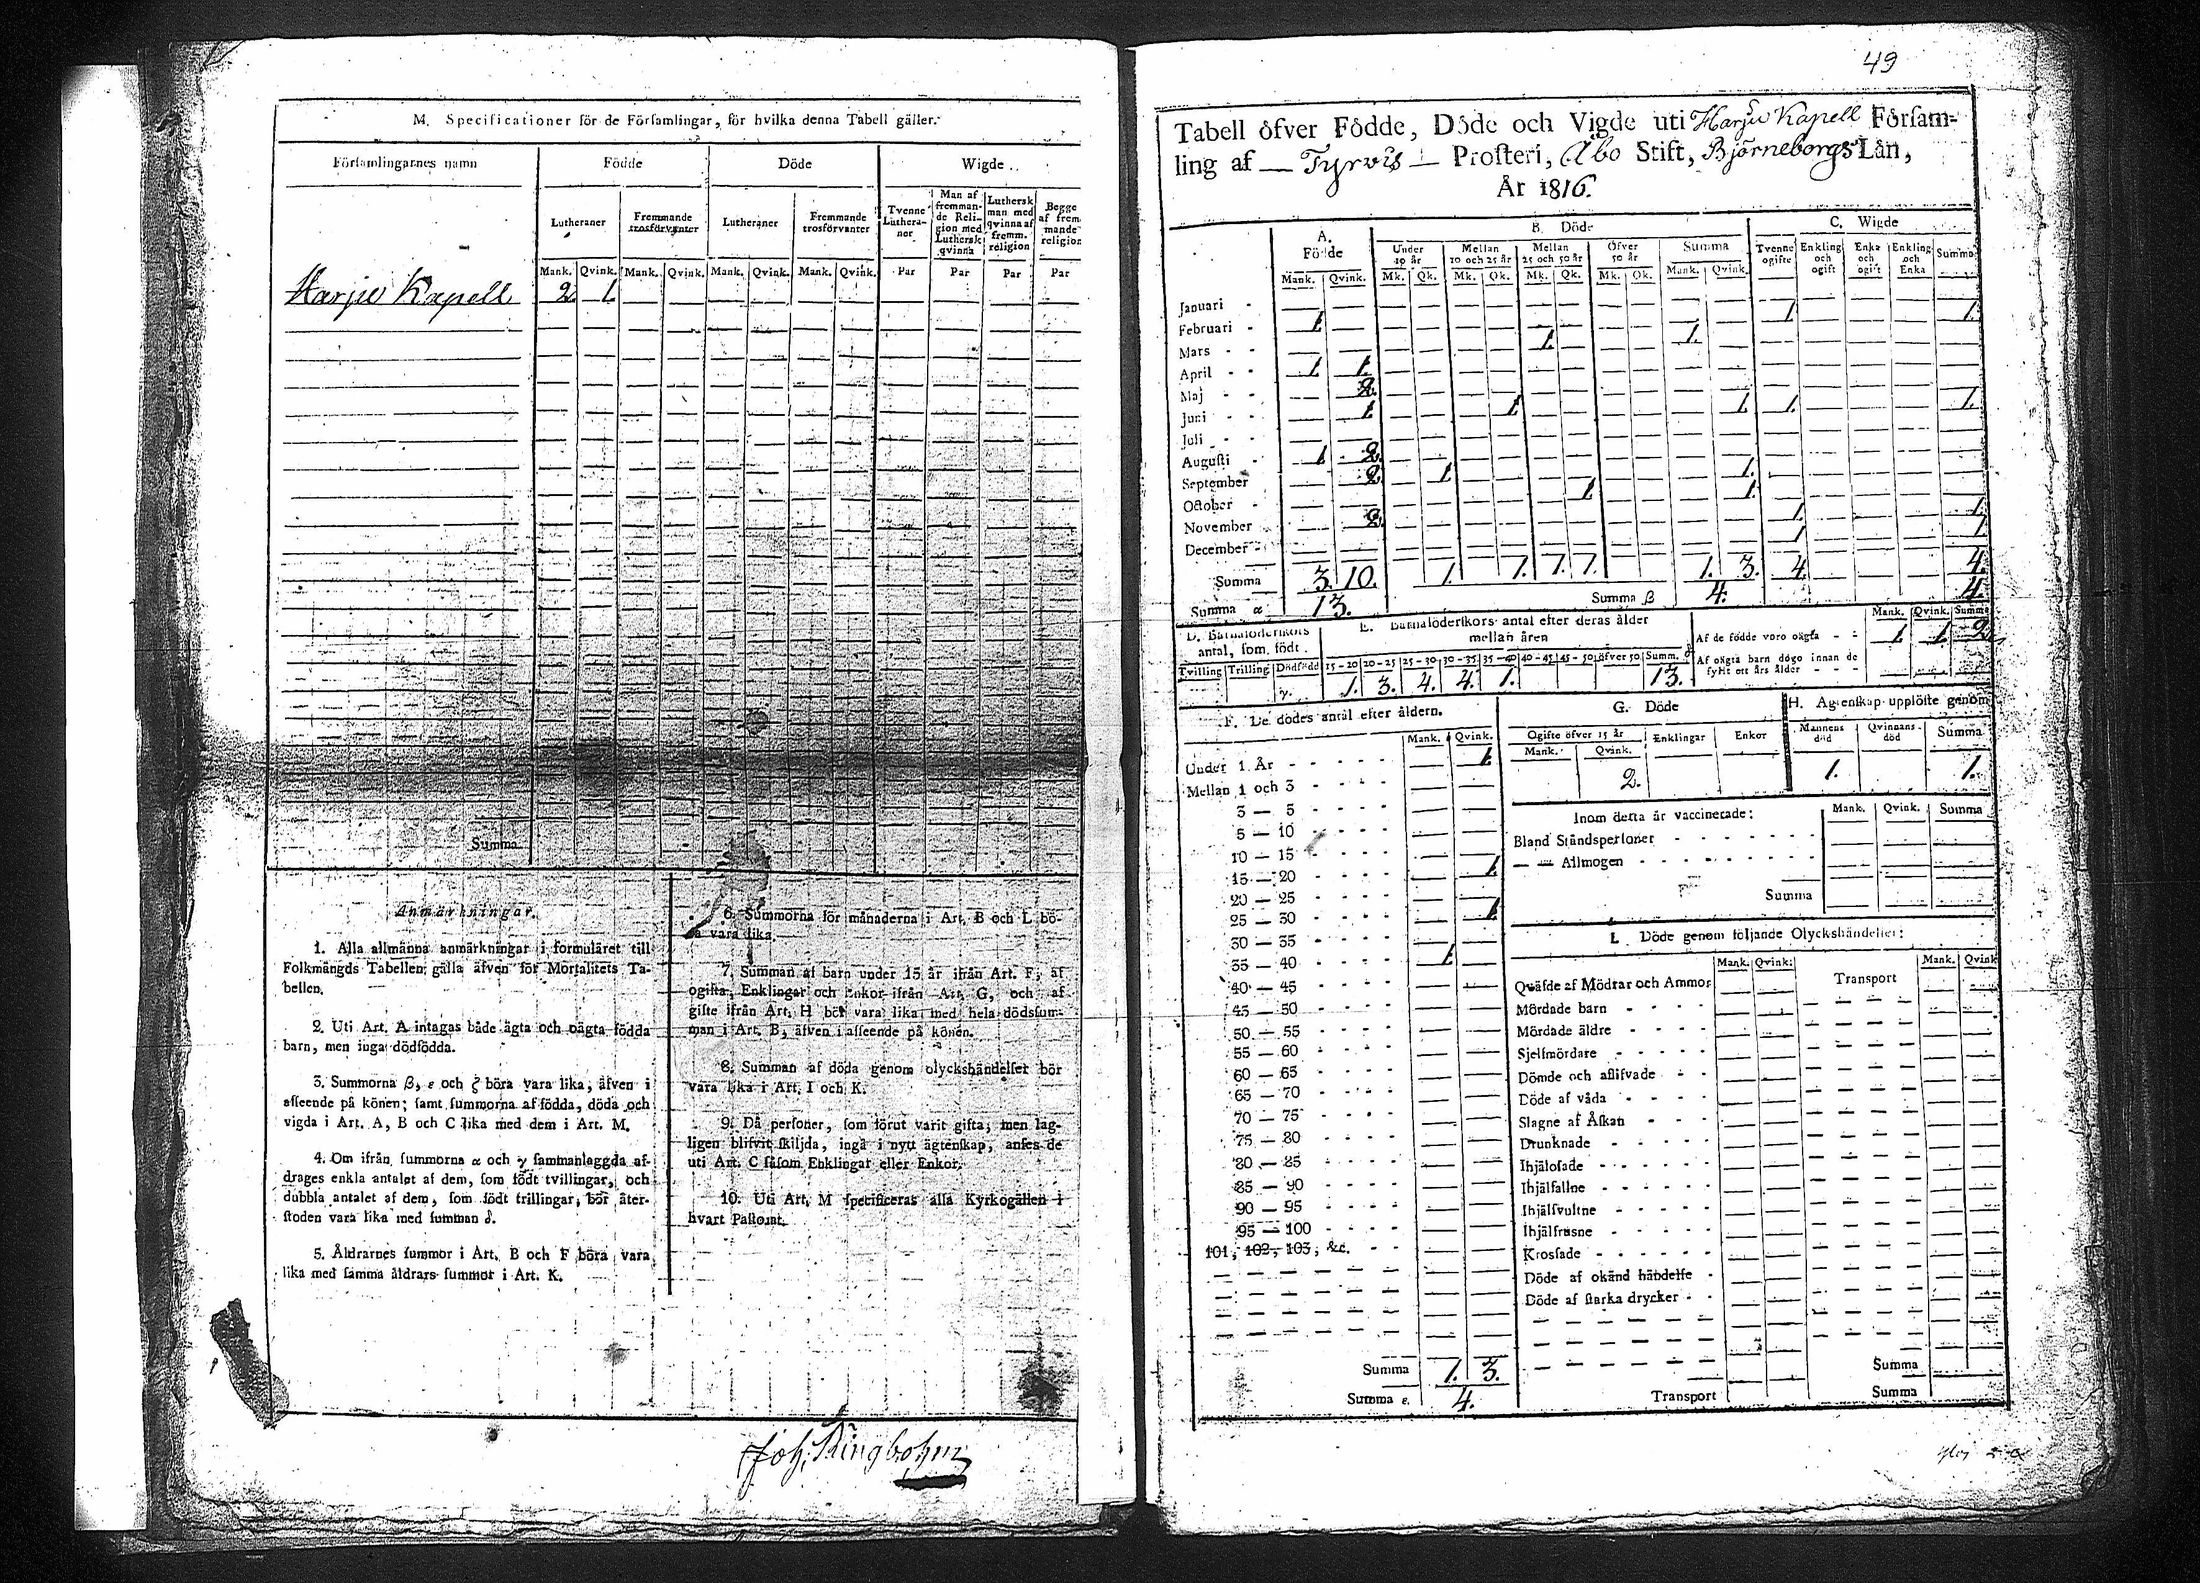 M. Specificationer för de Församlingar, för hvilka denna Tabell gäller.
Församlingarnes namn Födde Döde Wigde
Lutheraner Fremmande trosförvanter Lutheraner Fremmande trosförvanter Tvenne Lutheraner Man af fremmande Religion med Luthersk qvinna Luthersk man med qvinna af fremm. religion Begge af frem mande religion
Mank. Qvink. Mank. Qvink. Mank. Qvink. Mank. Qvink. Par Par Par Par
Harju Kapell 2 1.
Summa
Anmärkningar.
1. Alla allmänna anmärkningar i formuläret till
Folkmängds Tabellen gälla äfven för Mortalitets Ta-
bellen.
2. Uti Art. A intagas både ägta och oägta födda
barn, men inga dödfödda.
3. Summorna β, ε och ζ böra vara lika, äfven i
afseende på könen; samt summorna af födda, döda och
vigda i Art. A, B och C lika med dem i Art. M.
4. Om ifrån summorna α och γ sammanlaggda af-
drages enkla antalet af dem, som födt tvillingar, och
dubbla antalet af dem, som födt trillingar, bör åter-
stoden vara lika med summan δ.
5. Åldrarnes summor i Art. B och F böra vara
lika med samma åldrars summor i Art. K.
6. Summorna för månaderna i Art. B och L bö-
ra vara lika.
7. Summan af barn under 15 år ifrån Art. F, af
ogifta, Enklingar och Enkor ifrån Art. G, och af
gifte ifrån Art. H bör vara lika med hela dödssum-
man i Art. B, äfven i afseende på könen.
8. Summan af döda genom olyckshändelser bör
vara lika i Art. I och K.
9. Då personer, som förut varit gifta, men lag-
ligen blifvit skiljda, ingå i nytt ägtenskap, anses de
uti Art. C såsom Enklingar eller Enkor.
10. Uti Art. M specificeras alla Kyrkogällen i
hvart Pastorat.
Joh. Ringbohm
49
Tabell öfver Födde, Döde och Vigde uti Harju Kapell Församling
ling af Tyrvis Prosteri, Åbo Stift, Björneborgs Län,
År 1816.
A. Födde B. Döde C. Wigde
Under 10 år Mellan 10 och 25 år Mellan 25 och 50 år Öfver 50 år Summa Tvenne ogifte Enkling och ogift Enka och ogift Enkling och Enka Summa
Mank. Qvink. Mk. Qk. Mk. Qk. Mk. Qk. Mk. Qk. Mank. Qvink.
Januari 1. 1.
Februari 1.
Mars 1. 1.
April 1. 1.
Maj 2.
Juni 1. 1. 1. 1. 1.
Juli
Augusti 1. 2.
September 2. 1. 1.
October 1. 1.
November 2. 1. 1.
December 1. 1.
Summa 3. 10. 1. 1. 1. 1. 1. 3. 4. 4.
Summa α 13. Summa β 4. 4.
D. Barnaföderskors antal, som födt
Tvilling Trilling Dödfödd
γ.
E. Barnaföderskors antal efter deras ålder mellan åren
15-20 20-25 25-30 30-35 35-40 40-45 45-50 öfver 50 Summ. δ
1. 3. 4. 4. 1. 13.
Mank. Qvink. Summa
Af de födde voro oägta 1. 1. 2.
Af oägta barn dogo innan de fyllt ett års ålder
F. De dödes antal efter åldern.
Mank. Qvink.
Under 1 År 1.
Mellan 1 och 3
3 — 5
5 — 10
10 — 15
15 — 20 1.
20 — 25
25 — 30 1.
30 — 35
35 — 40 1.
40 — 45
45 — 50
50 — 55
55 — 60
60 — 65
65 — 70
70 — 75
75 — 80
80 — 85
85 — 90
90 — 95
95 — 100
101, 102, 103, &c.
Summa 1. 3.
Summa ε. 4.
G. Döde
Ogifte öfver 15 år Enklingar Enkor
Mank. Qvink.
2.
H. Ägtenskap upplöste genom
Mannens död Qvinnans död Summa
1. 1.
Inom detta år vaccinerade: Mank. Qvink. Summa
Bland Ståndspersoner
— — Allmogen
Summa
I. Döde genom följande Olyckshändelser:
Mank. Qvink. Transport Mank. Qvink
Qväfde af Mödrar och Ammor
Mördade barn
Mördade äldre
Sjelfmördare
Dömde och aflifvade
Döde af våda
Slagne af Åskan
Drunknade
Ihjälosade
Ihjälfallne
Ihjälsvultne
Ihjälfrusne
Krossade
Döde af okänd händelse
Döde af starka drycker
Summa
Transport Summa